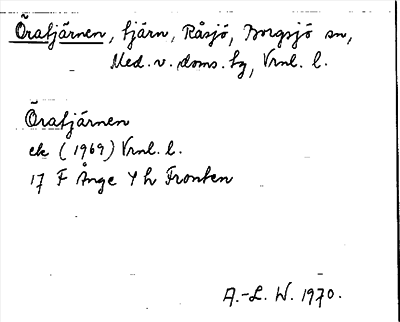 Öratjärnen, tjärn, Råsjö, Borgsjö sn,
Med. v. doms. hg, Vrnl. l.
Öratjärnen
ek (1969) Vrnl. l.
17 F Ånge Y h Fronten
A.-L. W. 1970.